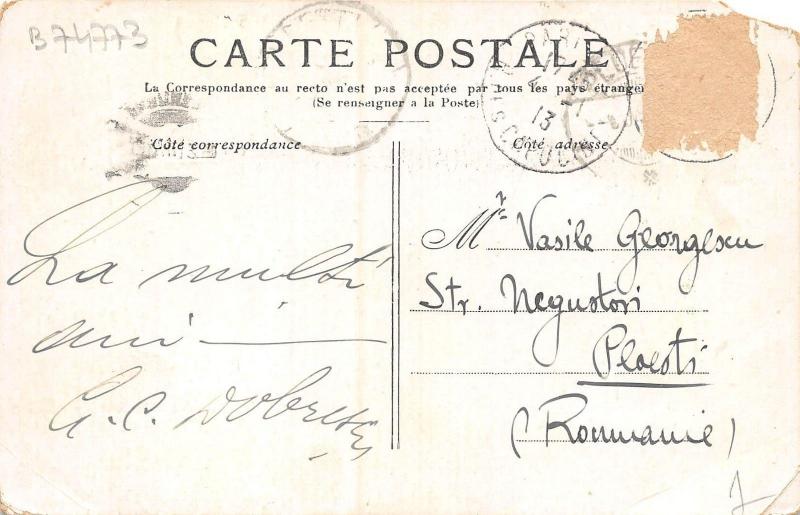 B 74773
CARTE POSTALE
La Correspondance au recto n'est pas acceptée par tous les pays étranger
(Se renseigner a la Poste)
Côté correspondance
Côté adresse
PARIS
13
La multi
ani
G. C. Dobrescu
Mr Vasile Georgescu
Str. Negustori
Ploesti
(Roumanie)